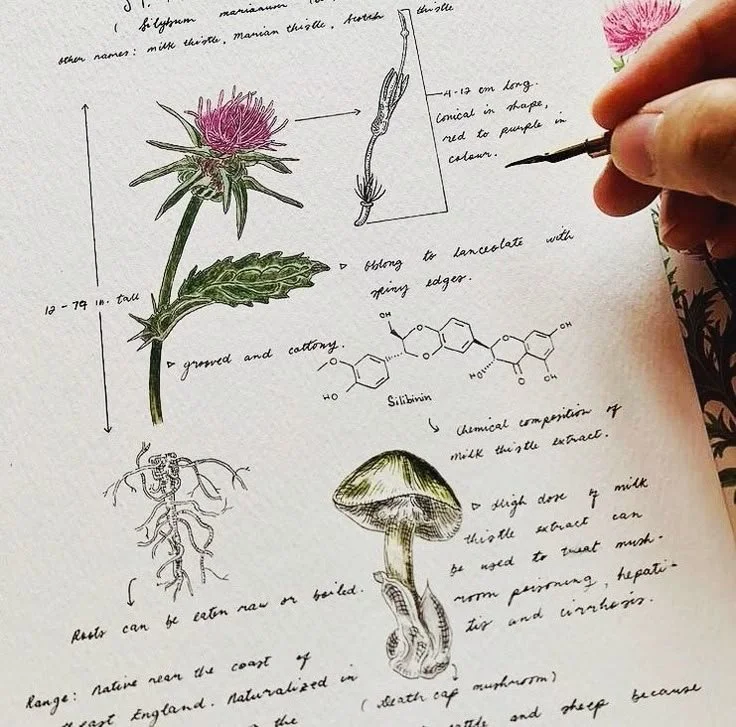 ( Silybum marianum
other names: milk thistle, Marian thistle, Scotch thistle
4-12 cm long.
Conical in shape,
red to purple in
colour.
Oblong to lanceolate with
spiny edges.
12 - 79 in. tall
grooved and cottony.
OH
O
O
O
HO
O
OH
HO
O
OH
Silibinin
Chemical composition of
milk thistle extract.
High dose of milk
thistle extract can
be used to treat mush-
room poisoning, hepati-
tis and cirrhosis.
Roots can be eaten raw or boiled.
Range: Native near the coast of
east England. Naturalized in
the
(Death cap mushroom)
cattle and sheep because